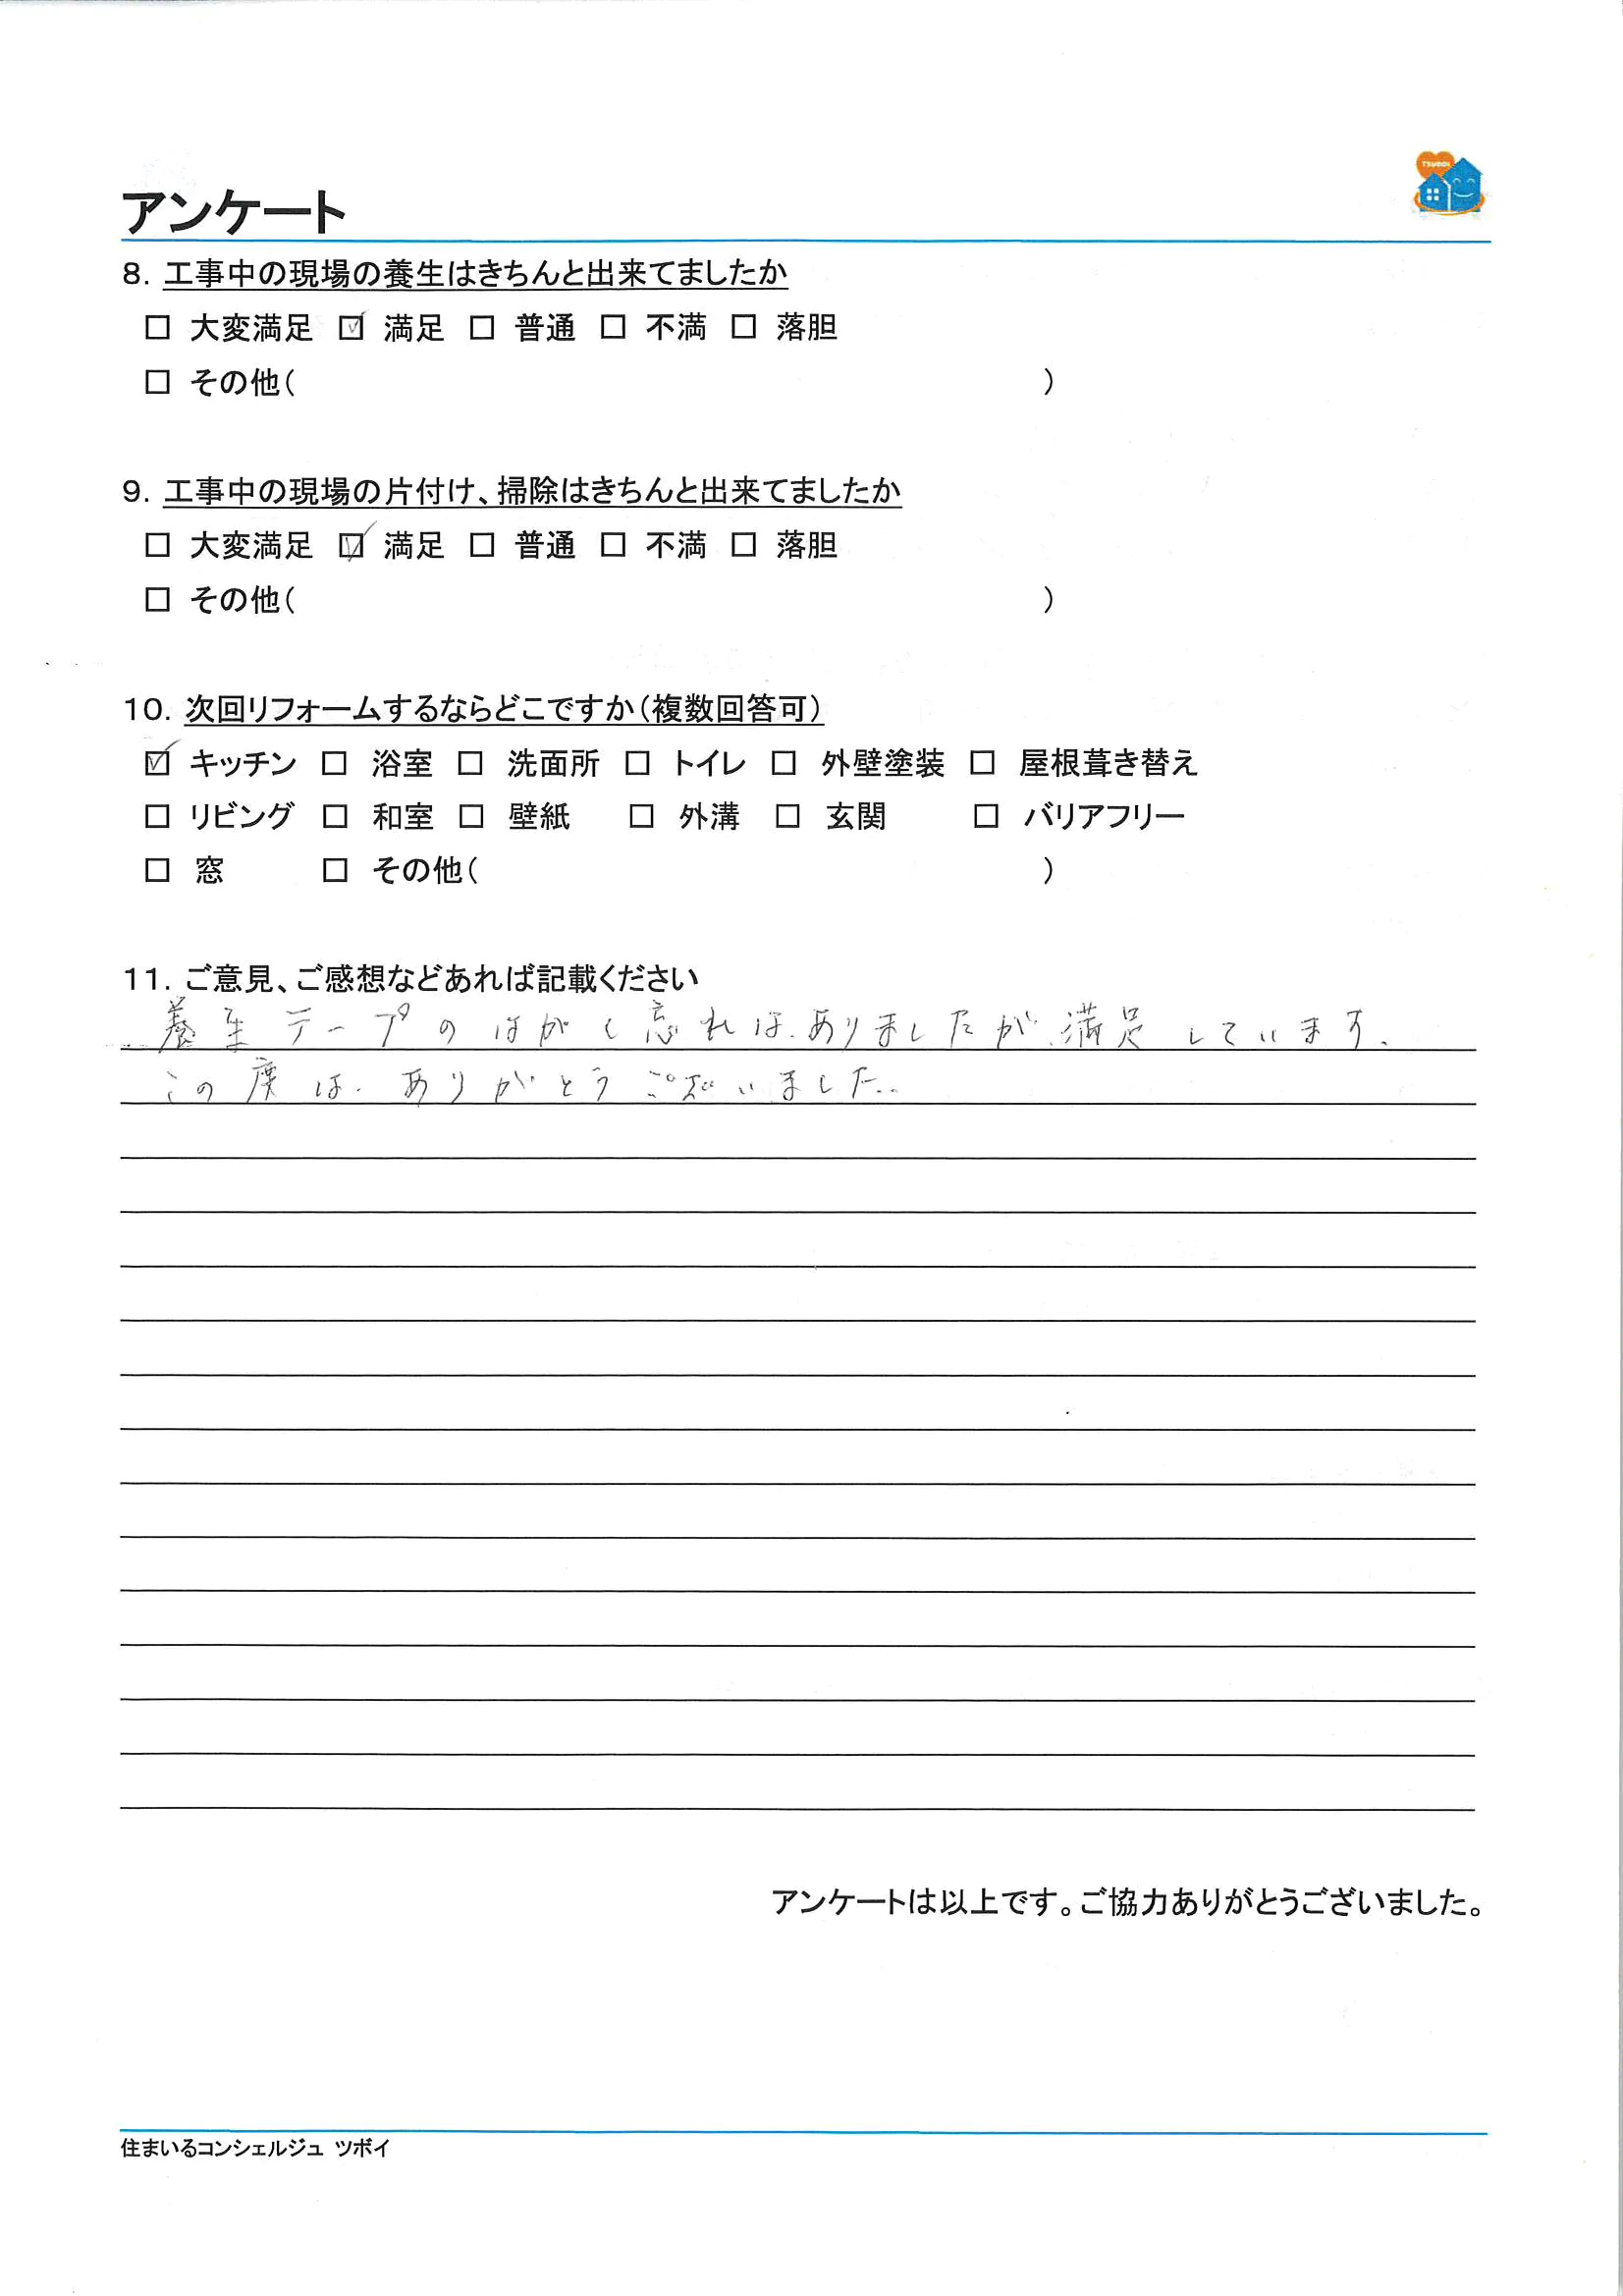 TSUBOI
アンケート
8. 工事中の現場の養生はきちんと出来てましたか
□ 大変満足 ☑ 満足 □ 普通 □ 不満 □ 落胆
□ その他( )
9. 工事中の現場の片付け、掃除はきちんと出来てましたか
□ 大変満足 ☑ 満足 □ 普通 □ 不満 □ 落胆
□ その他( )
10. 次回リフォームするならどこですか(複数回答可)
☑ キッチン □ 浴室 □ 洗面所 □ トイレ □ 外壁塗装 □ 屋根葺き替え
□ リビング □ 和室 □ 壁紙 □ 外溝 □ 玄関 □ バリアフリー
□ 窓 □ その他( )
11. ご意見、ご感想などあれば記載ください
養生テープのはがし忘れは、ありましたが、満足しています。
この度は、ありがとうございました。
アンケートは以上です。ご協力ありがとうございました。
住まいるコンシェルジュ ツボイ